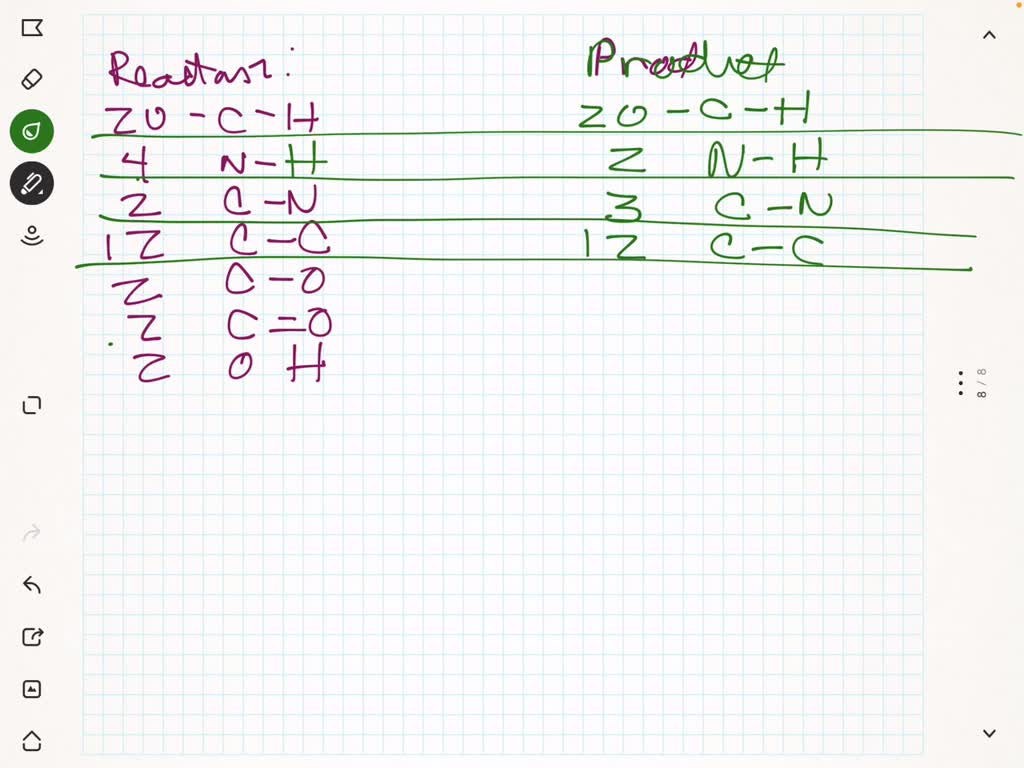 Reactant: Product
20 - C - H 20 - C - H
4 N - H 2 N - H
2 C - N 3 C - N
12 C - C 12 C - C
2 C - O
2 C = O
2 O H
8 / 8